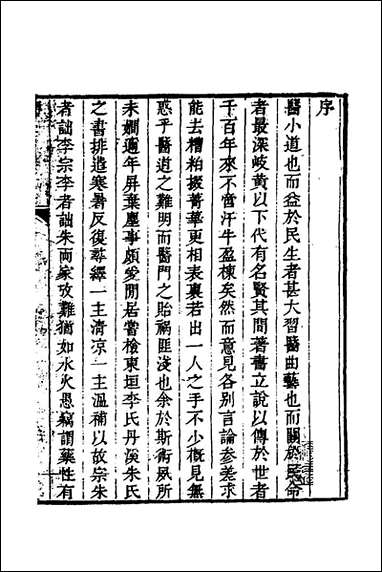 序
醫小道也而益於民生者甚大習醫曲藝也而關於民命
者最深岐黃以下代有名賢其間著書立說以傳於世者
千百年來不啻汗牛盈棟矣然而意見各別言論參差求
能去糟粕掇菁華更相表裏若出一人之手不少概見無
惑乎醫道之難明而醫門之貽禍匪淺也余於斯術夙所
未嫻邇年屏棄塵事頗愛閒居嘗檢東垣李氏丹溪朱氏
之書排遣寒暑反復尋繹一主清涼一主溫補以故宗朱
者詘李宗李者詘朱兩家攻難猶如水火愚竊謂藥性有